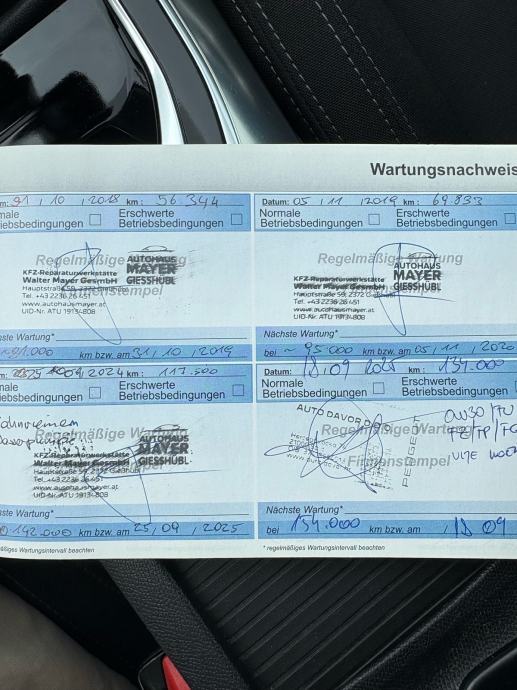 Wartungsnachweis
m: 31 / 10 / 2018 km: 56.344
male
iebsbedingungen
Erschwerte
Betriebsbedingungen
Regelmäßige Wartung
AUTOHAUS
MAYER
GIESSHÜBL
KFZ-Reparaturwerkstätte
Walter Mayer GesmbH
Hauptstraße 59, 2372 Giesshübl
Tel. +43 2236 26 451
www.autohausmayer.at
UID-Nr. ATU 19134808
Firmenstempel
Nächste Wartung*
km bzw. am 31 / 10 / 2019
Datum: 05 / 11 / 2019 km: 69.833
Normale
Betriebsbedingungen
Erschwerte
Betriebsbedingungen
Regelmäßige Wartung
AUTOHAUS
MAYER
GIESSHÜBL
KFZ-Reparaturwerkstätte
Walter Mayer GesmbH
Hauptstraße 59, 2372 Giesshübl
Tel. +43 2236 26 451
www.autohausmayer.at
UID-Nr. ATU 19134808
Firmenstempel
Nächste Wartung*
bei ~ 95.000 km bzw. am 05 / 11 / 2020
2024 km: 117.500
male
iebsbedingungen
Erschwerte
Betriebsbedingungen
Regelmäßige Wartung
AUTOHAUS
MAYER
GIESSHÜBL
KFZ-Reparaturwerkstätte
Walter Mayer GesmbH
Hauptstraße 59, 2372 Giesshübl
Tel. +43 2236 26 451
www.autohausmayer.at
UID-Nr. ATU 19134808
Firmenstempel
Nächste Wartung*
142.000 km bzw. am 25 / 09 / 2025
mäßiges Wartungsintervall beachten
Datum: 18 / 09 2025 km:
Normale
Betriebsbedingungen
Erschwerte
Betriebsbedingungen
AUTO DAVOR
Regelmäßige Wartung
Firmenstempel
Nächste Wartung*
bei 154.000 km bzw. am / 18 09
* regelmäßiges Wartungsintervall beachten